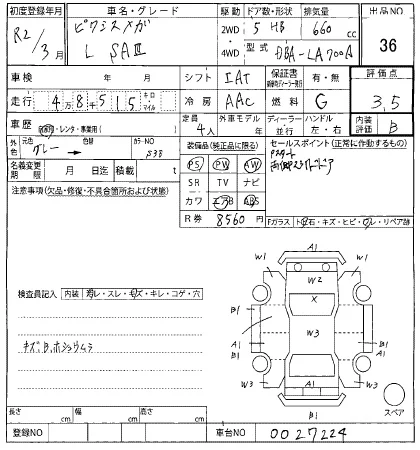 初度登録年月 車名・グレード 駆動 ドア数・形状 排気量 出品NO
R2/3月 ピクシスメガ 2WD 5 HB 660 cc 36
L SAⅢ 4WD 型式 DBA-LA700A
車検 年 月 シフト IAT 保証書 有・無 評価点
走行 4万8千515 キロ マイル 冷房 AAC 燃料 G 3.5
車歴 自家用・レンタ・事業用( ) 定員 4人 外車モデル 年 ディーラー 並行 ハンドル 左・右 内装評価 B
外色 元色 グレー → 色替 カラーNO S38 装備品(純正品に限る) セールスポイント(正常に作動するもの)
名義変更期限 月 日迄 積載 t PS PW AW
SR TV ナビ
注意事項(欠品・修復・不具合箇所および状態) カワ エアB ABS
R券 8560円 Fガラス 石・キズ・ヒビ・ リペア跡
A1
W1 W1
W2
X
B1 B1
検査員記入 内装 汚レ・スレ・キズ・キレ・コゲ・穴
W3
A1 A1
B1 B1
キズ、B、ホシュウムラ
W3 A1 W3
B1 スペア
長さ cm 幅 cm 高さ cm
登録NO 車台NO 0027224